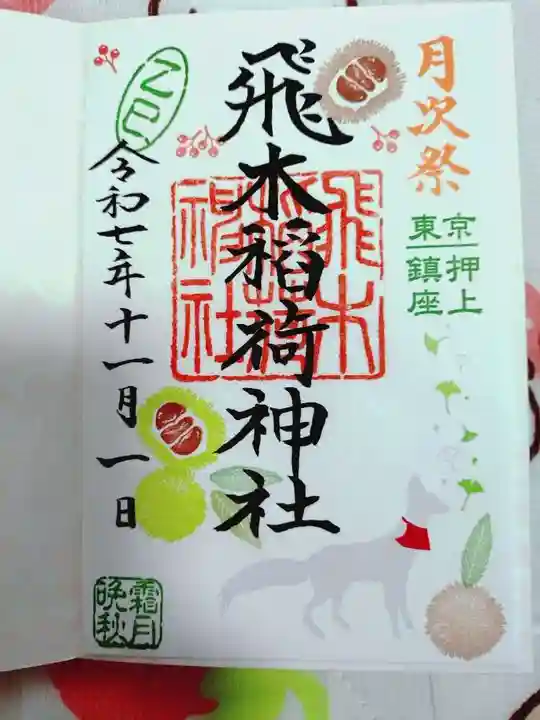 月次祭
東京押上
鎮座
飛木稲荷神社
飛木
稲荷
神社
令和七年十一月一日
霜月
晩秋